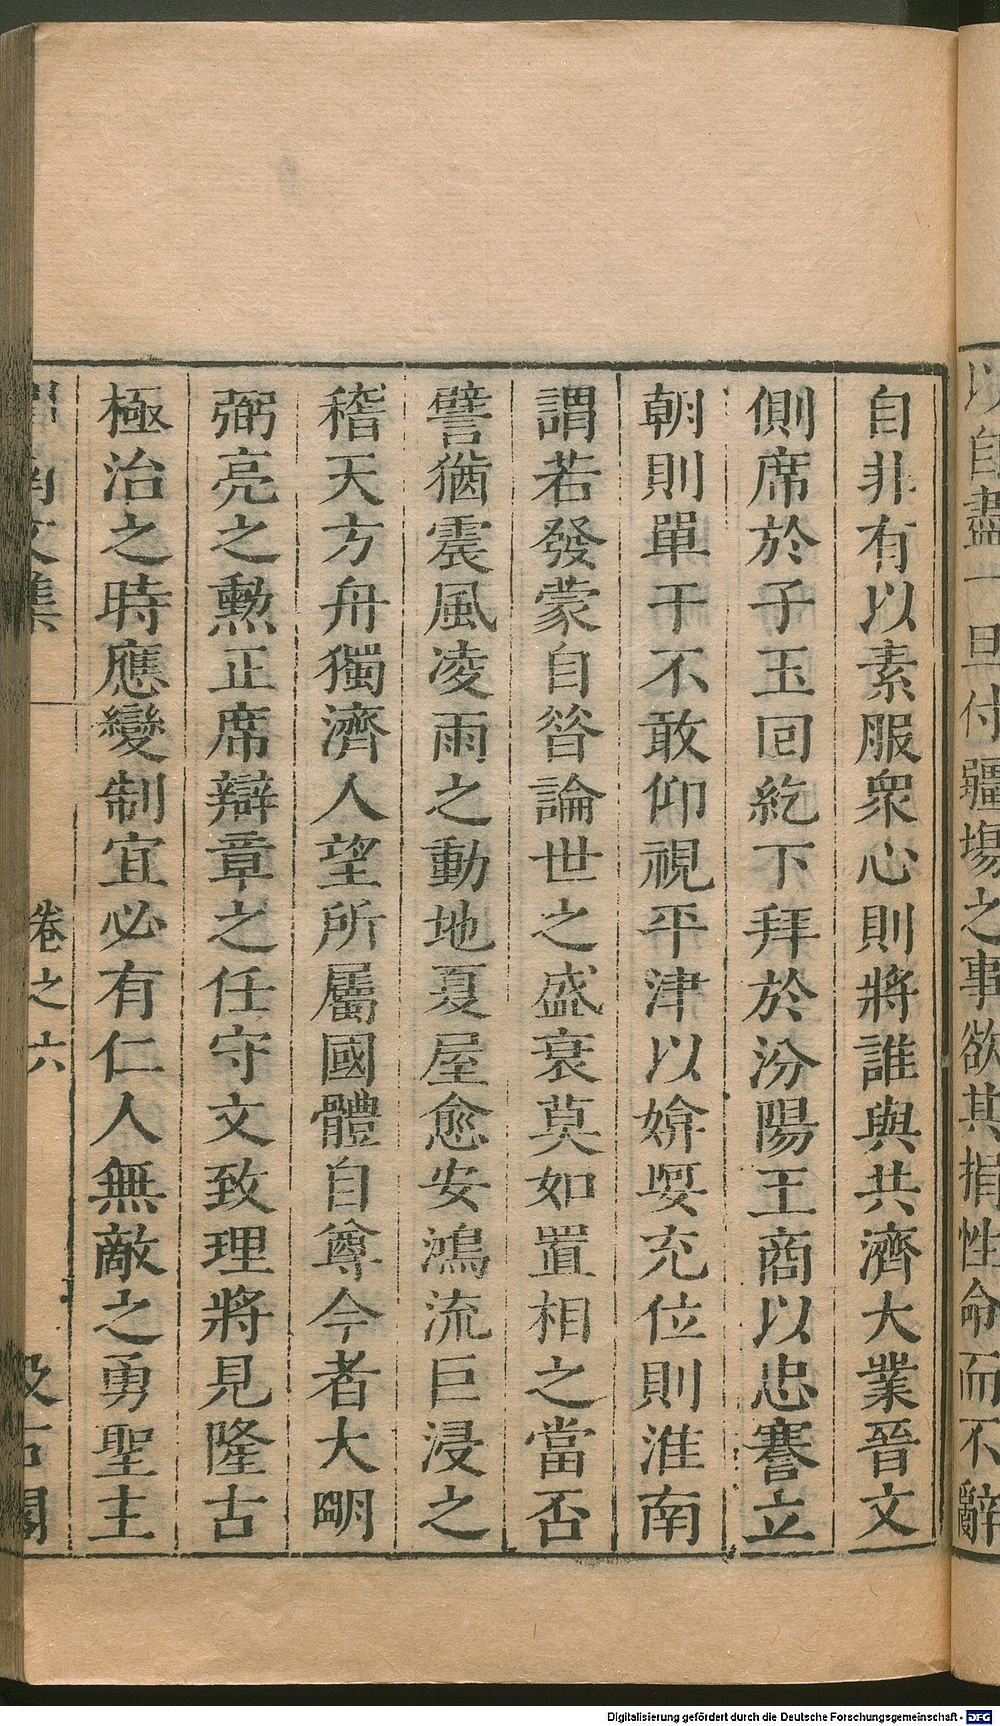 以自盡一旦付疆場之事欲其捐性命而不辭
自非有以素服衆心則將誰與共濟大業晉文
側席於子玉回紇下拜於汾陽王商以忠謇立
朝則單于不敢仰視平津以媕娿充位則淮南
謂若發蒙自昝論世之盛衰莫如置相之當否
譬猶震風凌雨之動地夏屋愈安鴻流巨浸之
稽天方舟獨濟人望所屬國體自尊今者大明
弼亮之勲正席辯章之任守文致理將見隆古
極治之時應變制宜必有仁人無敵之勇聖主
南文集
卷之六
汲古閣
Digitalisierung gefördert durch die Deutsche Forschungsgemeinschaft - DFG